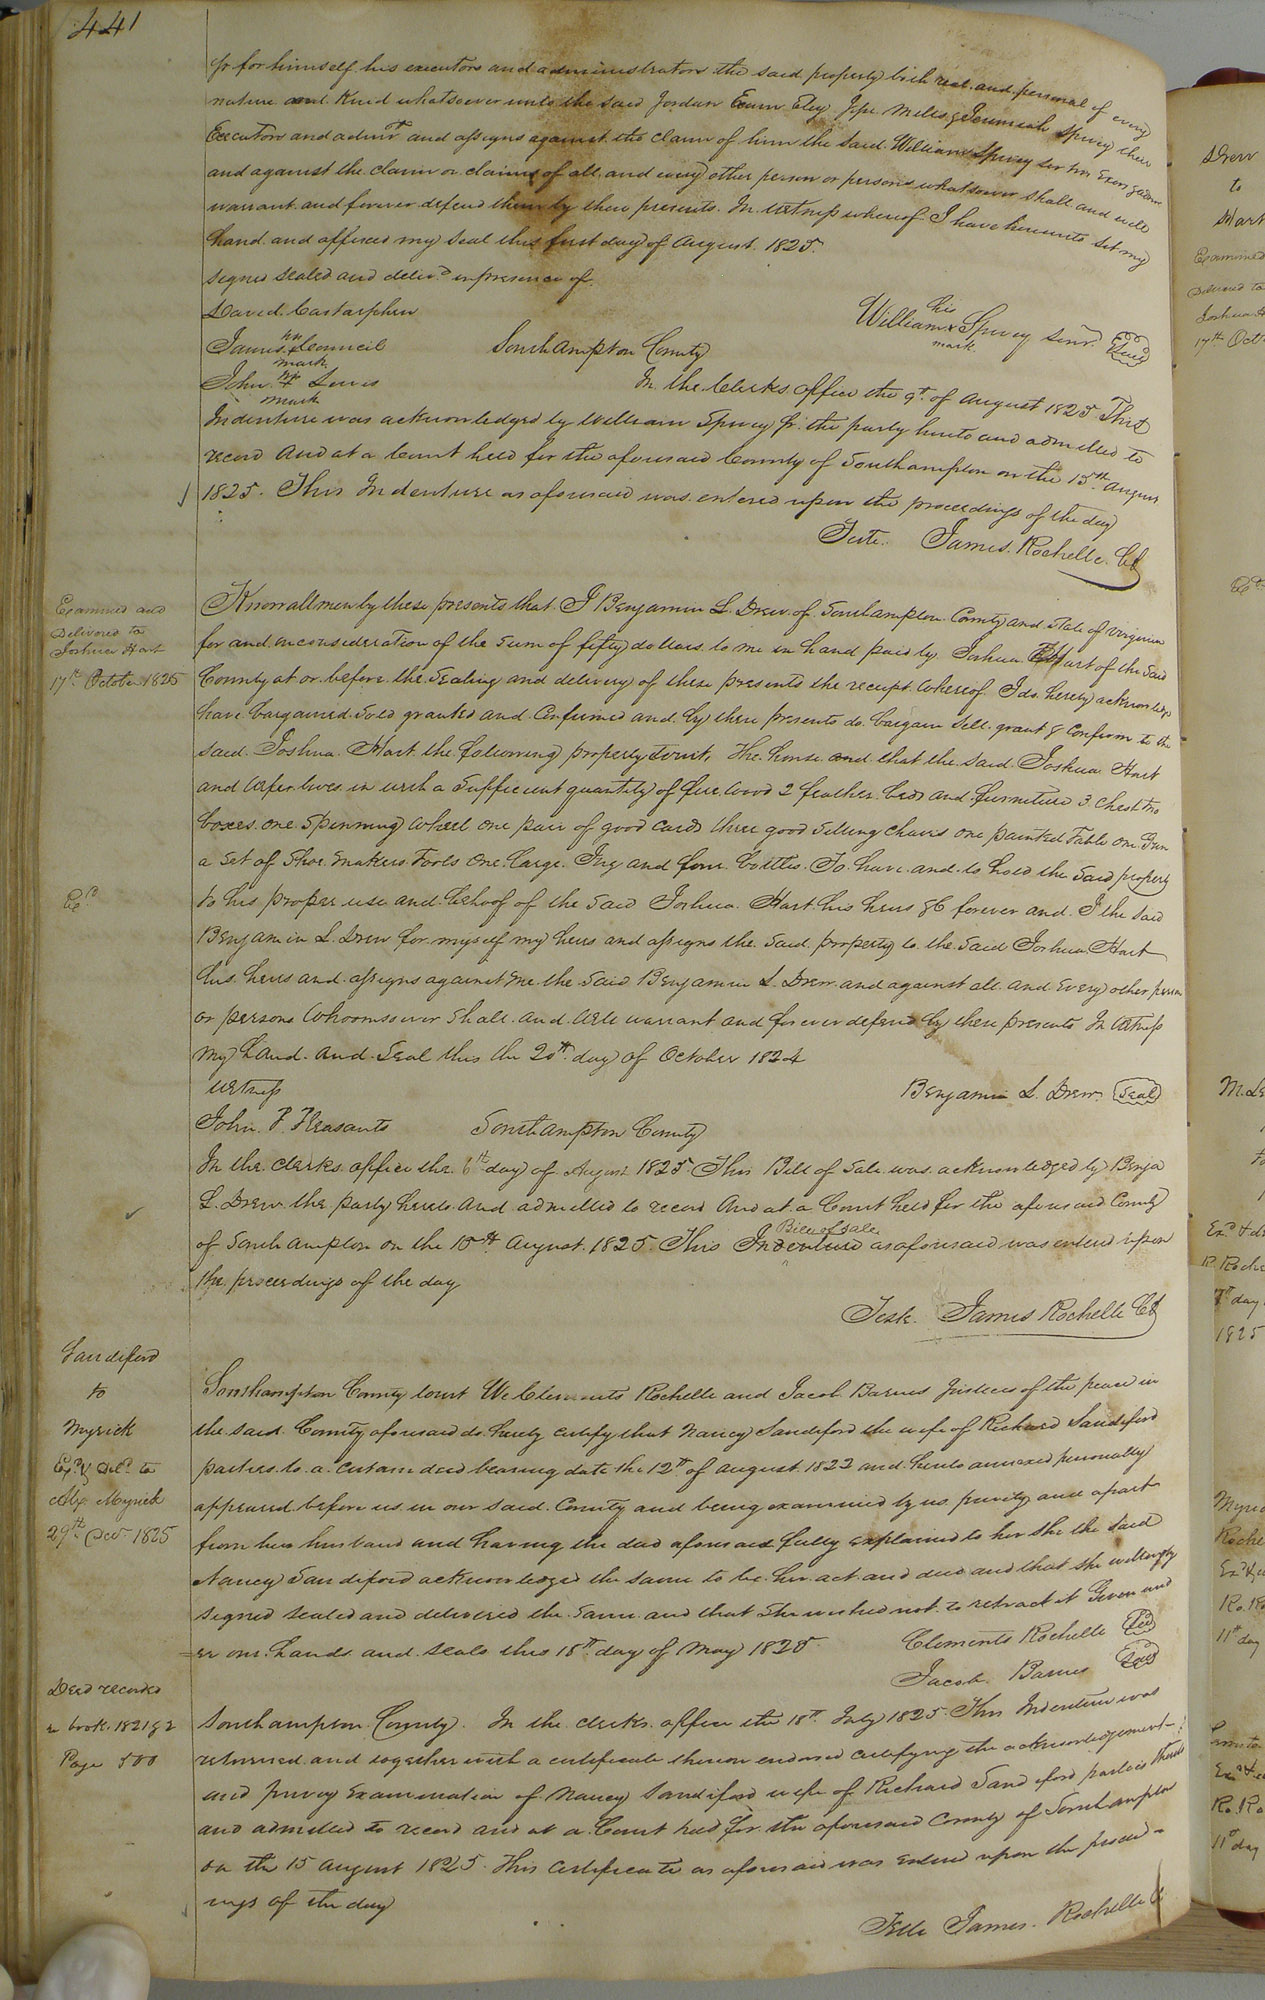 441
Sr. for himself his executors and administrators the said property both real and personal of every
nature and kind whatsoever unto the said Jordan Edwin Eley Jesse Miles & Jeremiah Spivey their
Executors and admors and assigns against the claim of him the said William Spivey senr his Exors & adm
and against the claim or claims of all and every other person or persons whatsoever shall and will
warrant and forever defend them by these presents. In witness whereof I have hereunto set my
hand and affixed my seal this first day of August 1825.
signed sealed and delivd in presence of
David Castarphen
his
William x Spivey Senr. Seal
mark
his
James x Council
mark
Southampton County
his
John + Lewis
mark
In the Clerks office the 9th of August 1825 This
Indenture was acknowledged by William Spivey Sr. the party hereto and admitted to
record And at a Court held for the aforesaid County of Southampton on the 15th August
1825. This Indenture as aforesaid was entered upon the proceedings of the day
Teste. James. Rochelle. Cl
Examined and
Delivered to
Joshua Hart
17th October 1825
Know all men by these presents that I Benjamin L. Drew of Southampton County and State of Virginia
for and in consideration of the sum of fifty dollars to me in hand paid by Joshua Hart of the said
County at or before the Sealing and delivery of these presents the receipt whereof I do hereby acknowledge
have bargained sold granted and Confirmed and by these presents do bargain sell grant & Confirm to the
said Joshua Hart the following property towit, The house and that the said Joshua Hart
and wife lives in with a Sufficient quantity of fire wood 2 feather beds and furniture 3 Chest two
boxes one Spinning Wheel one pair of good Cards three good Sitting chairs one painted Table one Gun
a set of Shoe makers Tools one large Jug and four bottles To have and to hold the said property
Exd
to his proper use and behoof of the said Joshua Hart his heirs &c forever and I the said
Benjamin L. Drew for myself my heirs and assigns the said property to the said Joshua Hart
his heirs and assigns against me the said Benjamin L. Drew and against all and every other person
or persons Whoomsoever Shall and Will warrant and forever defend by these presents In Witness
my hand and Seal this the 20th day of October 1824
Witness
Benjamin L. Drew. Seal
John. P. Pleasants
Southampton County
In the clerks office the 6th day of August 1825 This Bill of Sale was acknowledged by Benja
L. Drew the party hereto and admitted to record And at a Court held for the aforesaid County
Bill of Sale
of Southampton on the 15th August 1825 This Indenture as aforesaid was entered upon
the proceedings of the day
Teste. James Rochelle Cl
Sandiford
to
Myrick
Exd & deld to
Myrick
29th Decr 1825
Southampton County Court We Clements Rochelle and Jacob Barnes Justices of the peace in
the said County aforesaid do hereby certify that Nancy Sandiford the wife of Richard Sandiford
parties to a certain deed bearing date the 12th of August 1822 and hereto annexed personally
appeared before us in our said County and being examined by us privily and apart
from her husband and having the deed aforesaid fully explained to her She the said
Nancy Sandiford acknowledged the same to be her act and deed and that she willingly
signed sealed and delivered the same and that She wished not to retract it Given und
=er our hands and seals this 18th day of May 1825
Clements Rochelle Seal
Jacob. Barnes Seal
Deed recorded
in book. 1821 & 2
Page 500
Southampton County. In the clerks office the 18th July 1825 This Indenture was
returned and together with a certificate thereon endorsed certifying the acknowledgement
and privy Examination of Nancy Sandiford wife of Richard Sandiford parties thereto
and admitted to record and at a Court held for the aforesaid County of Southampton
on the 15 August 1825. This certificate as aforesaid was entered upon the proceed =
ings of the day
Teste James. Rochelle Cl
Drew
to
Hart
Examined
Delivered to
Joshua H
17th Oct
7th day
1825
11th day
11th day